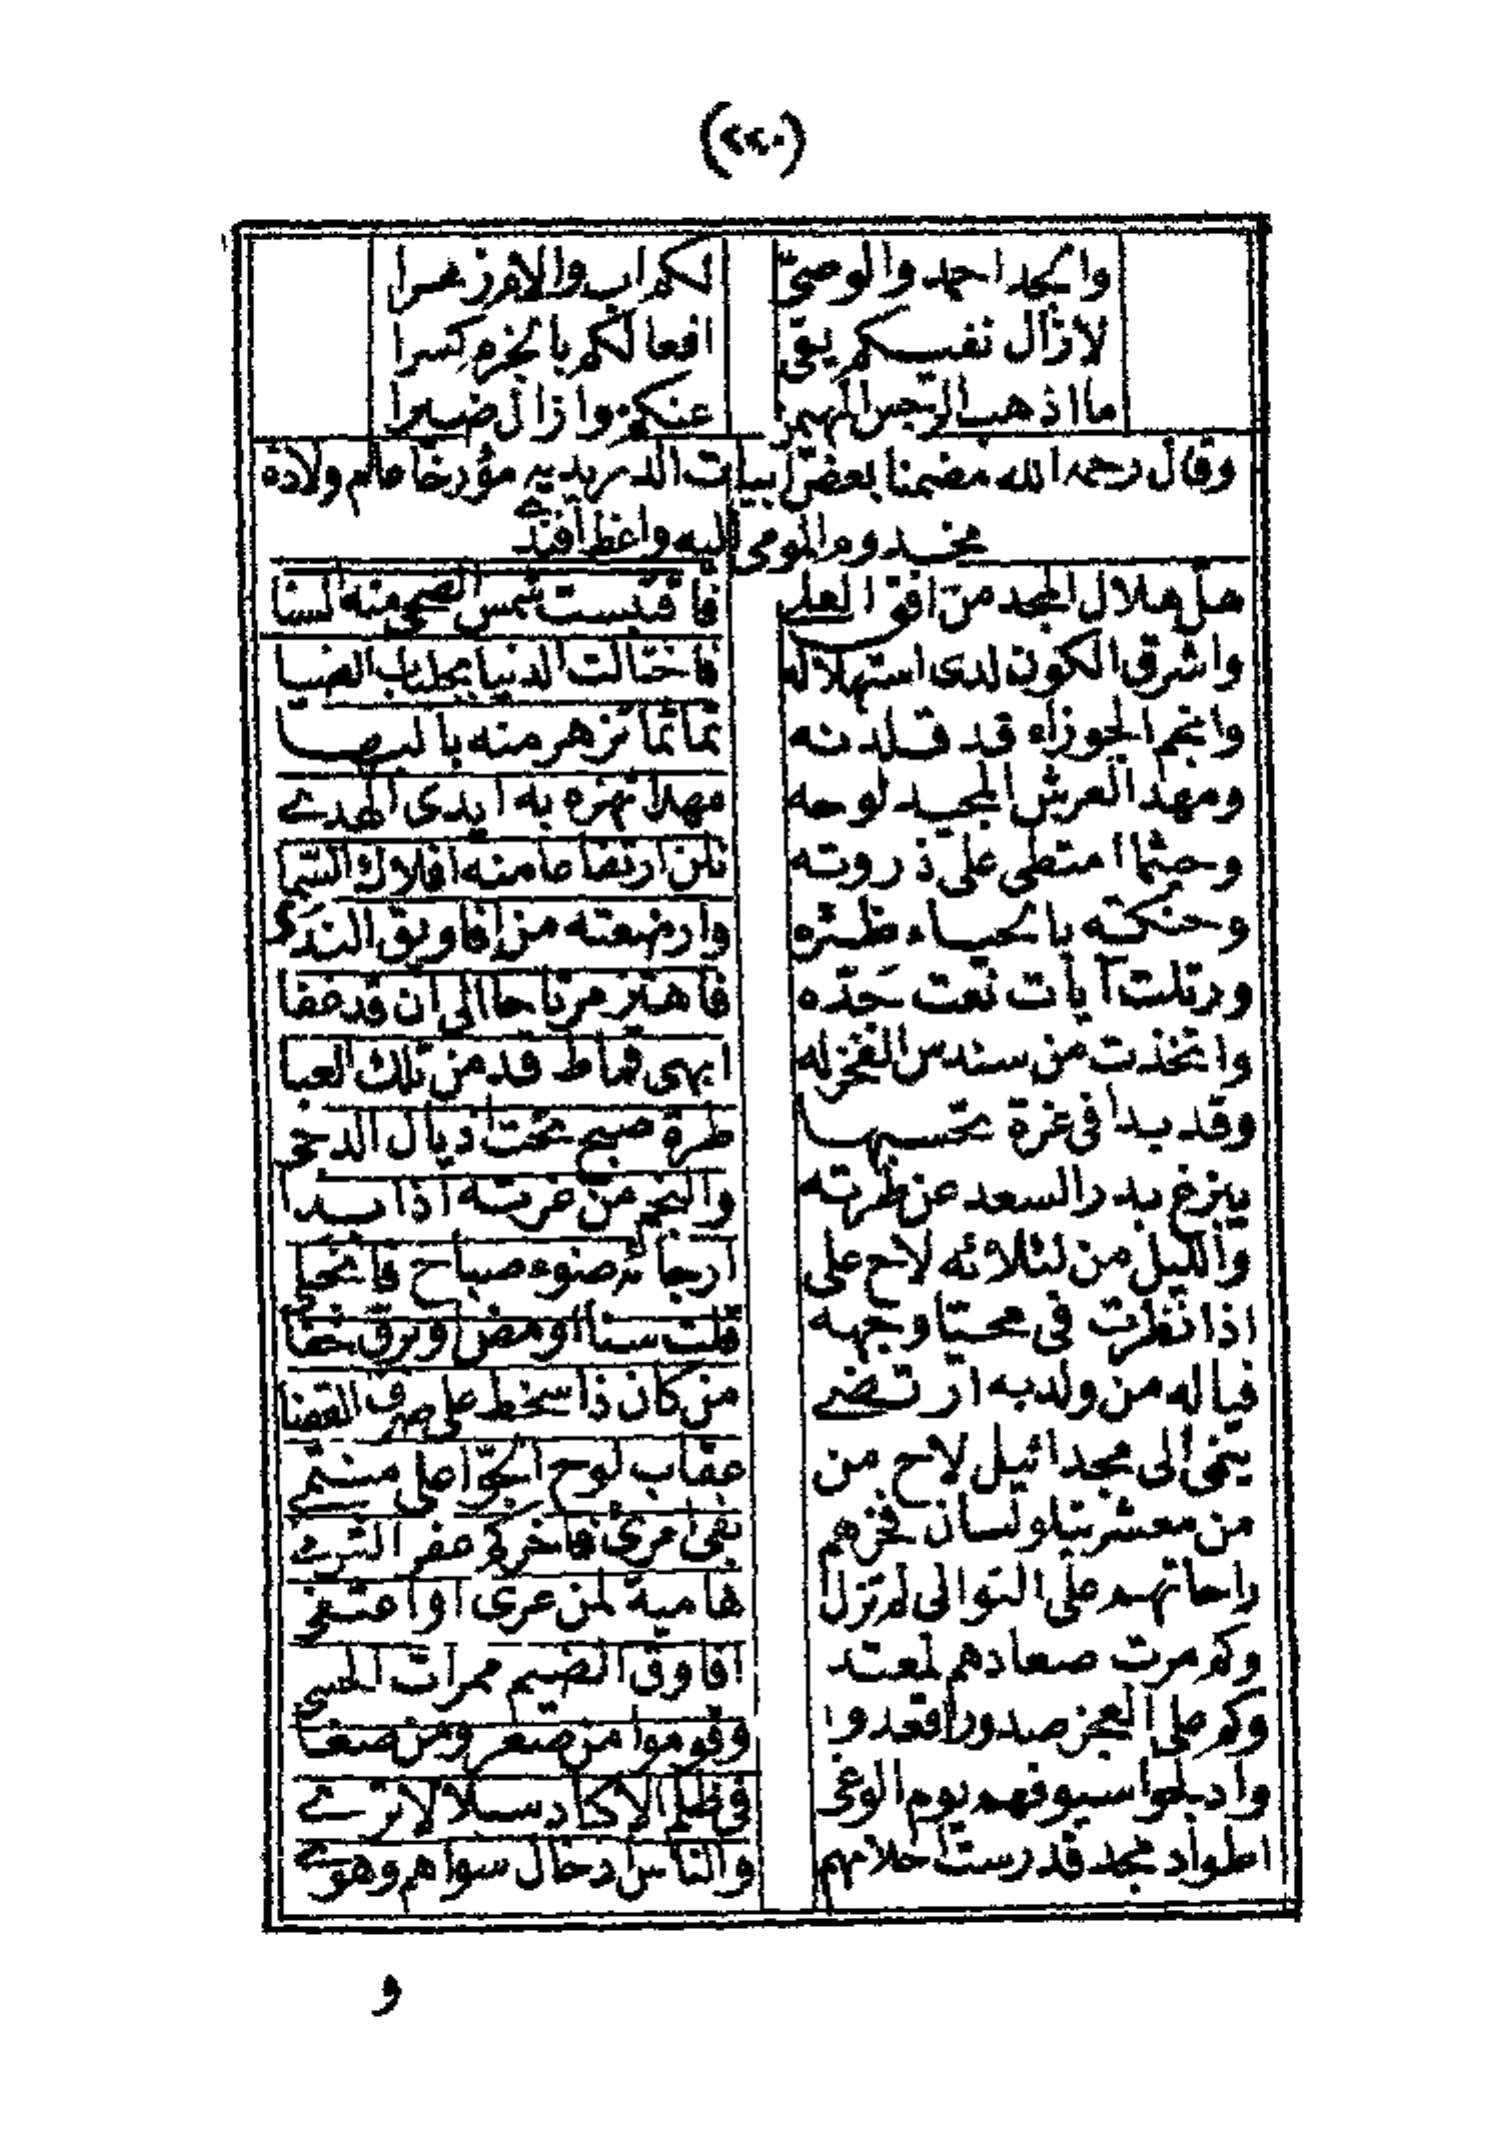 (٢٢٠)
والجد احمد والوصيّ لكم اب والام زهرا
لا زال نفيسكم يقى افعالكم بالجزم كسرا
ما اذهب الرجس المهيمن عنكم وازال ضيرا
وقال رحمه الله مضمنا بعض ابيات الدريديه مؤرخا عام ولادة
مخدوم المومى اليه واعظ افندى
هل هلال المجد من افق العلى فاقتبست شمس الضحى منه السنا
واشرق الكون لدى استهلاله فاختالت الدنيا بجلباب الضيا
وانجم الجوزاء قد قلدنه تمائما تزهر منه بالبصا
ومهد العرش المجيد لوحه مهدا تهزه به ايدى الهدى
وحيثما امتطى على ذروته نلن ارتفاعا منه افلاك السّما
وحنكته بالحياء ظئره وارضعته من افاويق الندى
ورتلت آيات نعت جدّه فاهتز مرتاحا الى ان قد غفا
واتخذت من سندس الفخر له ابهى قماط قد من تلك العبا
وقد بدا فى غرة تحسبها طرة صبح تحت اذيال الدجى
يبزغ بدر السعد عن طرته والنجم من غرته اذا بدا
والليل من لئلائه لاح على ارجائه ضوء صباح فانجلى
اذا نظرت فى محيّا وجهه قلت سنا اومض او برق خفا
فيا له من ولد به ارتضى من كان ذا سخط على صرف القضا
ينمى الى مجد اثيل لاح من عقاب لوح الجوّ اعلى منتمى
من معشر يتلو لسان فخرهم بفى امرئ فاخركم عفر الثرى
راحاتهم على التوالى لم تزل هامية لمن عرى او اعتفى
وكم مرت صعادهم لمعتد افاوق الضيم ممرات الحسى
وكم على العجز صدورا اقعدوا وقوموا من صعر ومن صغا
وادبلجوا سيوفهم يوم الوغى فى ظلم الاكباد سبلا لا ترى
اطواد مجد قد رست احلامهم والناس ادحال سواهم وهوى
و